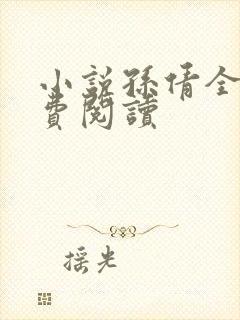 小說孫倩全
費閱讀
摇光